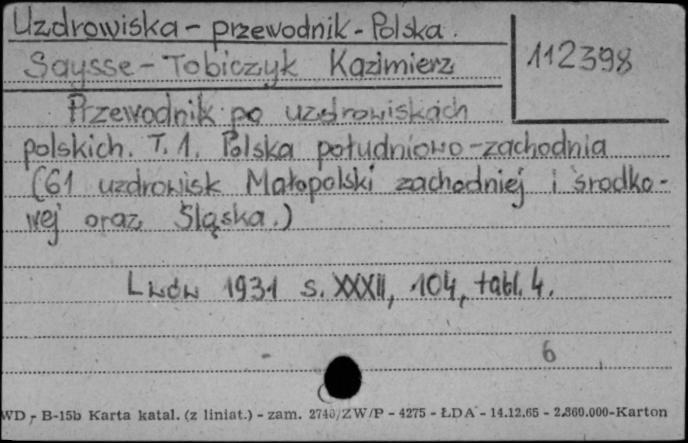 Uzdrowiska - przewodnik - Polska.
112398
Saysse - Tobiczyk Kazimierz
Przewodnik po uzdrowiskach
polskich. T. 1. Polska południowo-zachodnia
(61 uzdrowisk Małopolski zachodniej i środko-
wej oraz Śląska.)
Lwów 1931 s. XXXII, 104, tabl. 4.
6
WD - B-15b Karta katal. (z liniat.) - zam. 2740/ZW/P - 4275 - ŁDA - 14.12.65 - 2.860.000-Karton